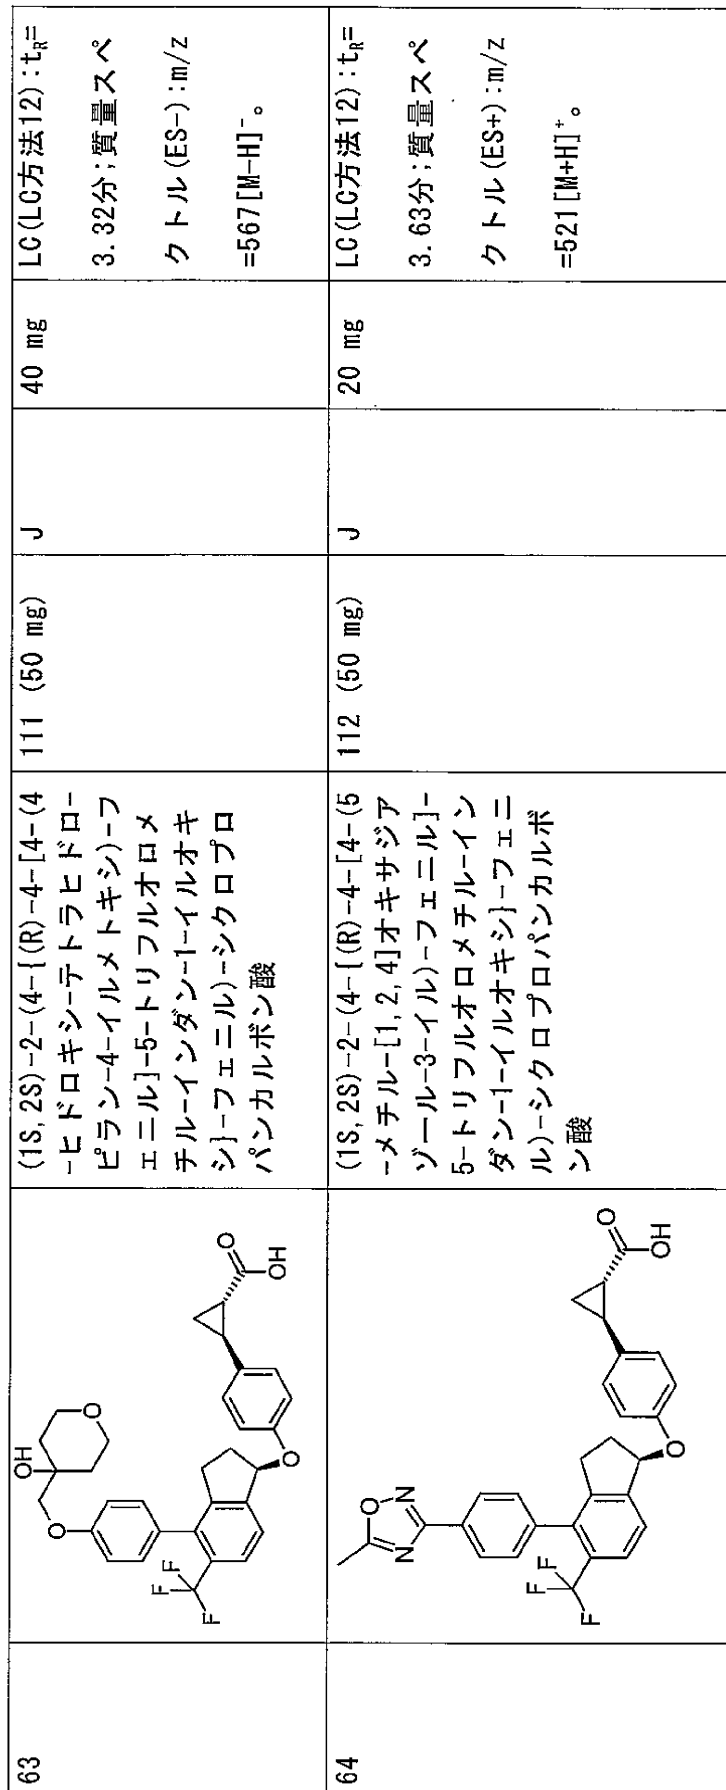 63
OH
O
O
F
F
F
O
O
OH
(1S,2S)-2-(4-{(R)-4-[4-(4
-ヒドロキシ-テトラヒドロ-
ピラン-4-イルメトキシ)-フ
ェニル]-5-トリフルオロメ
チル-インダン-1-イルオキ
シ}-フェニル)-シクロプロ
パンカルボン酸
111 (50 mg)
J
40 mg
LC(LC方法12):tR=
3.32分;質量スペ
クトル(ES-):m/z
=567[M-H]-。
64
O
N
N
F
F
F
O
O
OH
(1S,2S)-2-(4-{(R)-4-[4-(5
-メチル-[1,2,4]オキサジア
ゾール-3-イル)-フェニル]-
5-トリフルオロメチル-イン
ダン-1-イルオキシ}-フェニ
ル)-シクロプロパンカルボ
ン酸
112 (50 mg)
J
20 mg
LC(LC方法12):tR=
3.63分;質量スペ
クトル(ES+):m/z
=521[M+H]+。